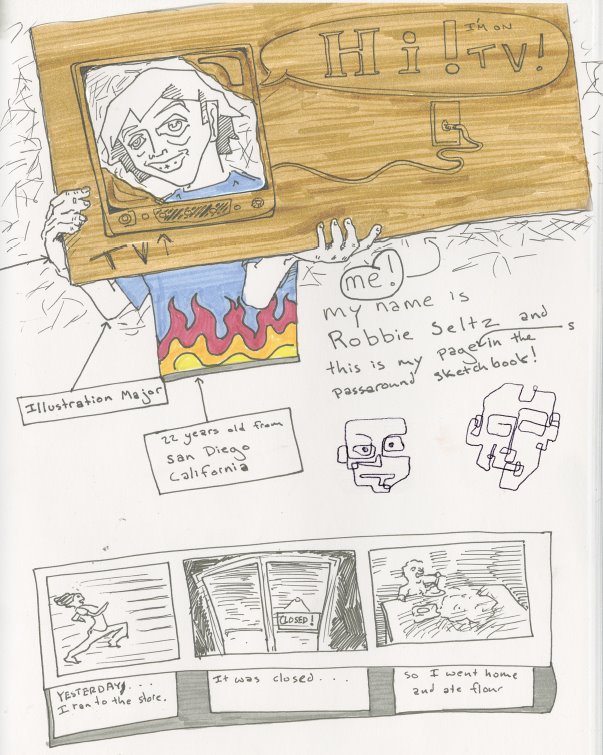 Hi! I'M ON
TV!
TV
me!
my name is
Robbie Seltz and
this is my pages in the
passaround sketchbook!
Illustration Major
22 years old from
San Diego
California
CLOSED!
YESTERDAY....
I ran to the store.
It was closed....
so I went home
and ate flour